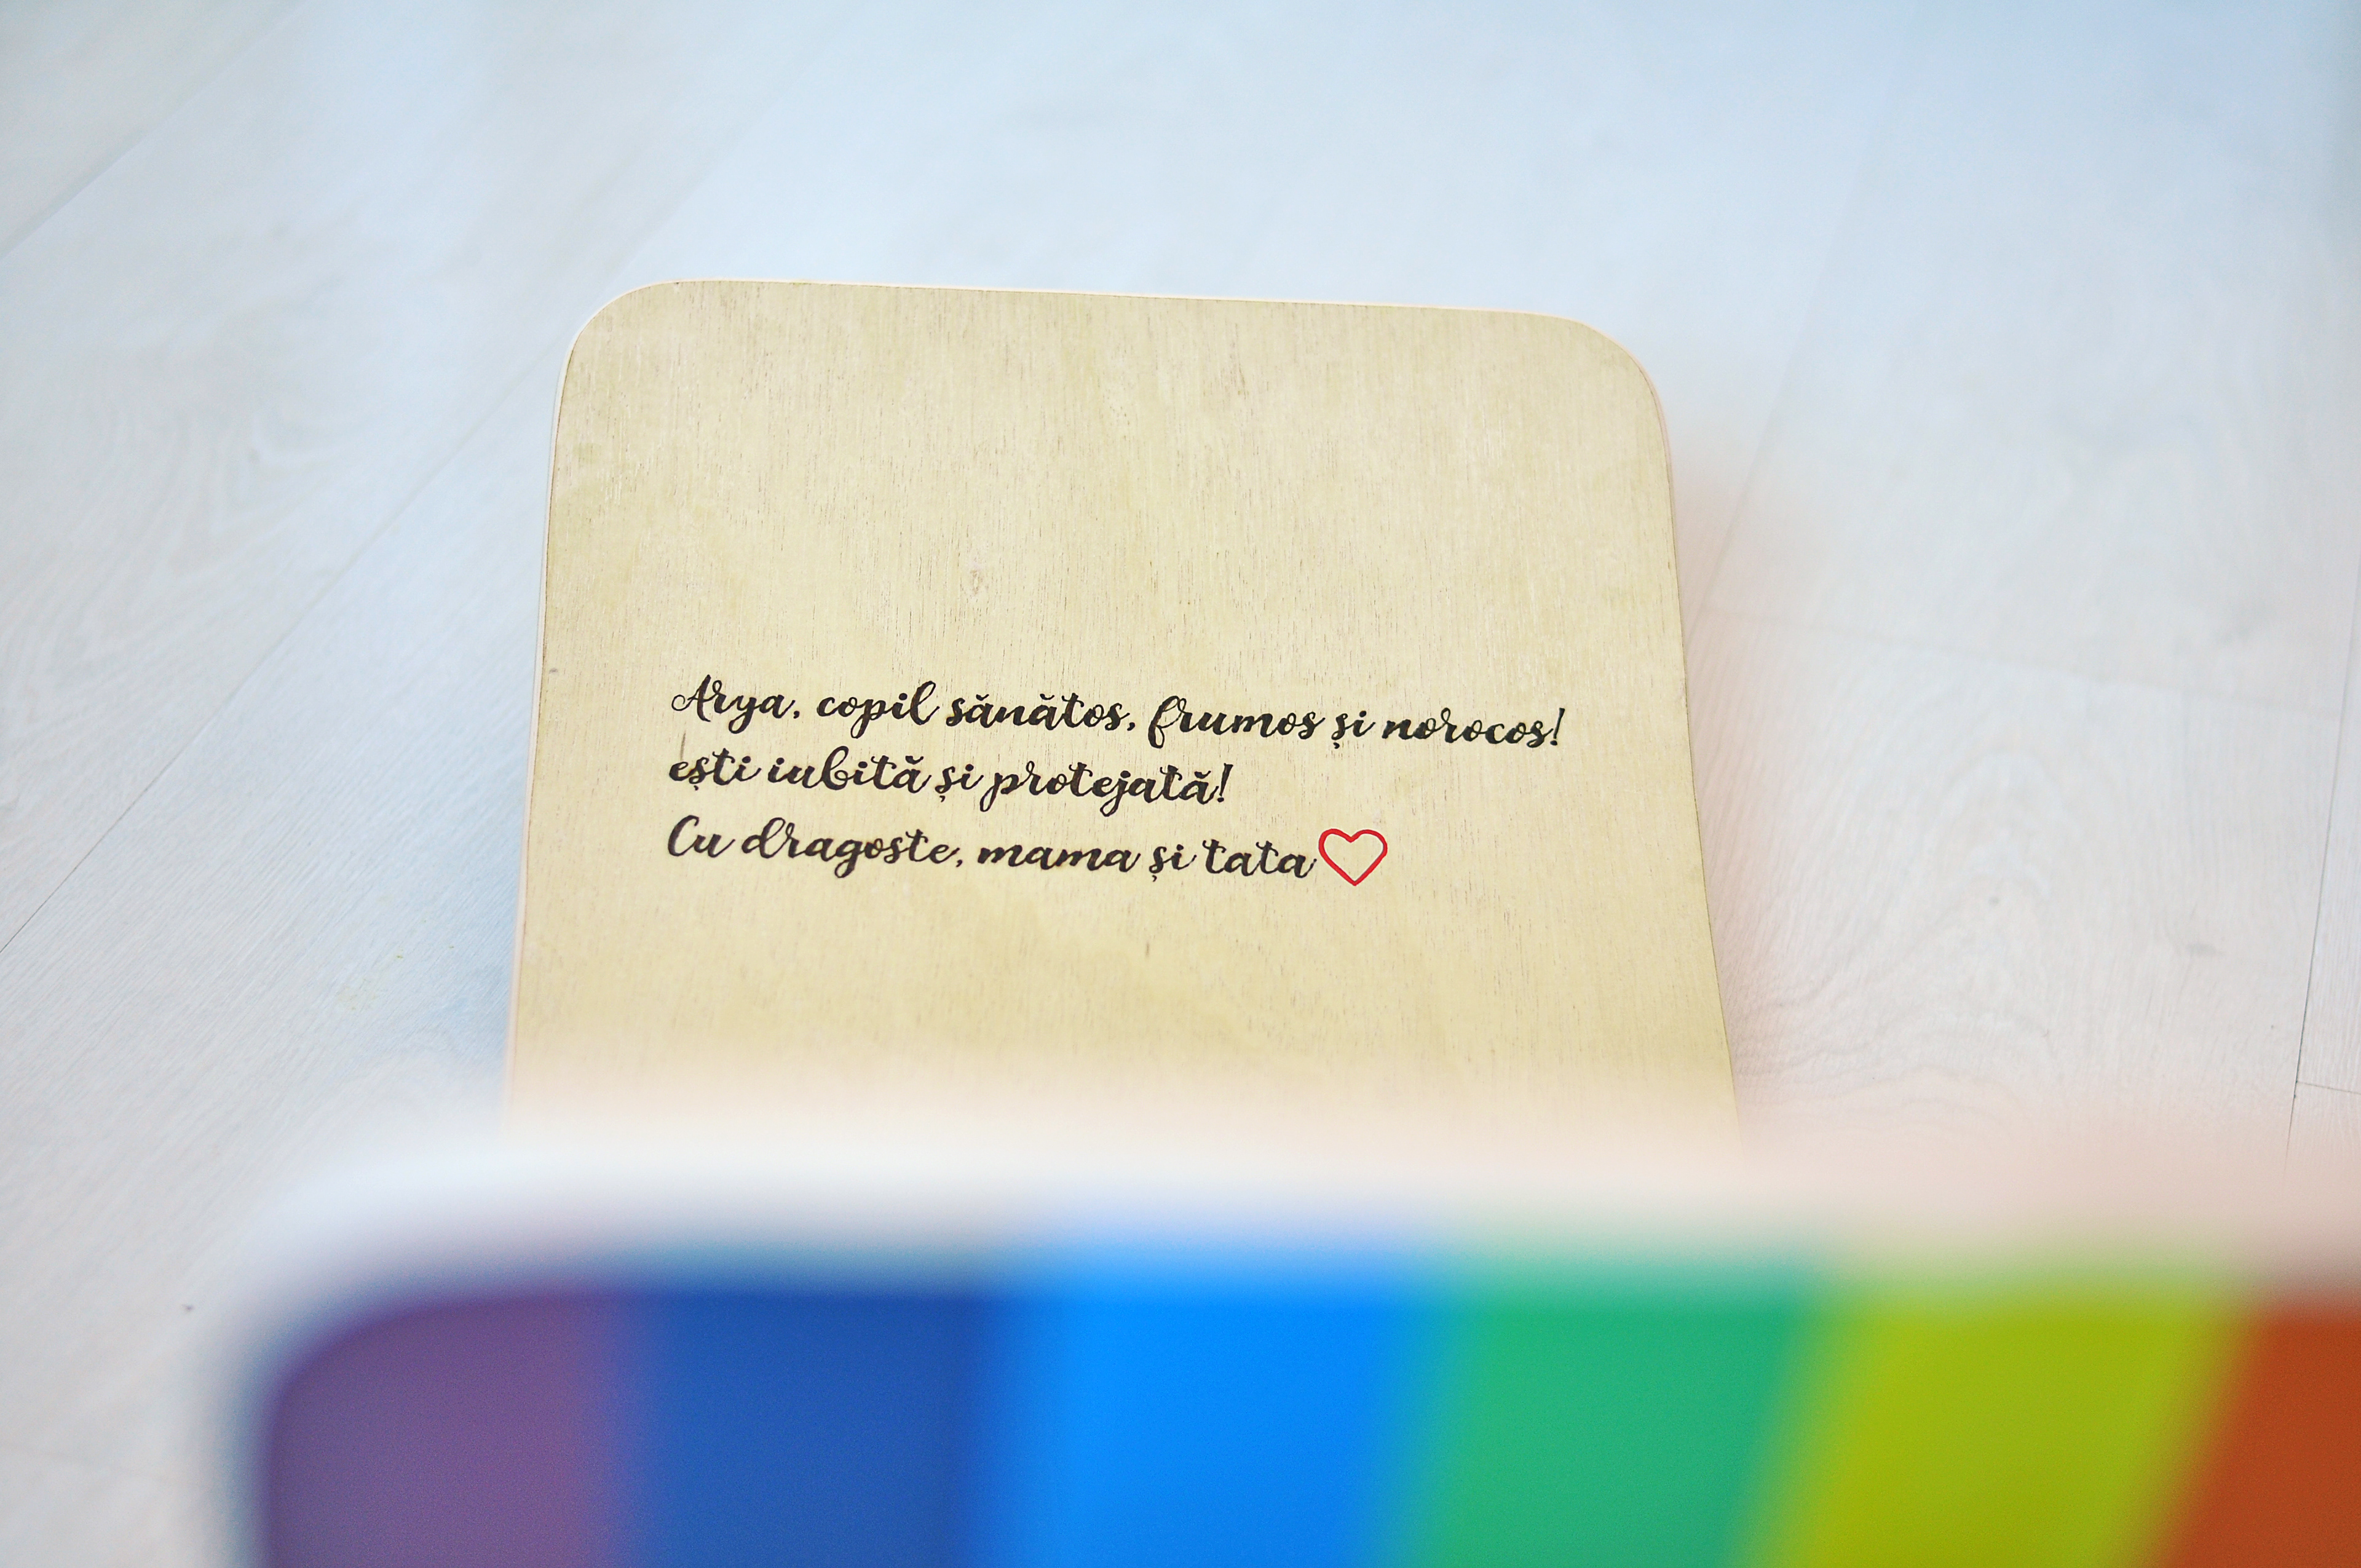 Arya, copil sănătos, frumos și norocos!
ești iubită și protejată!
Cu dragoste, mama și tata